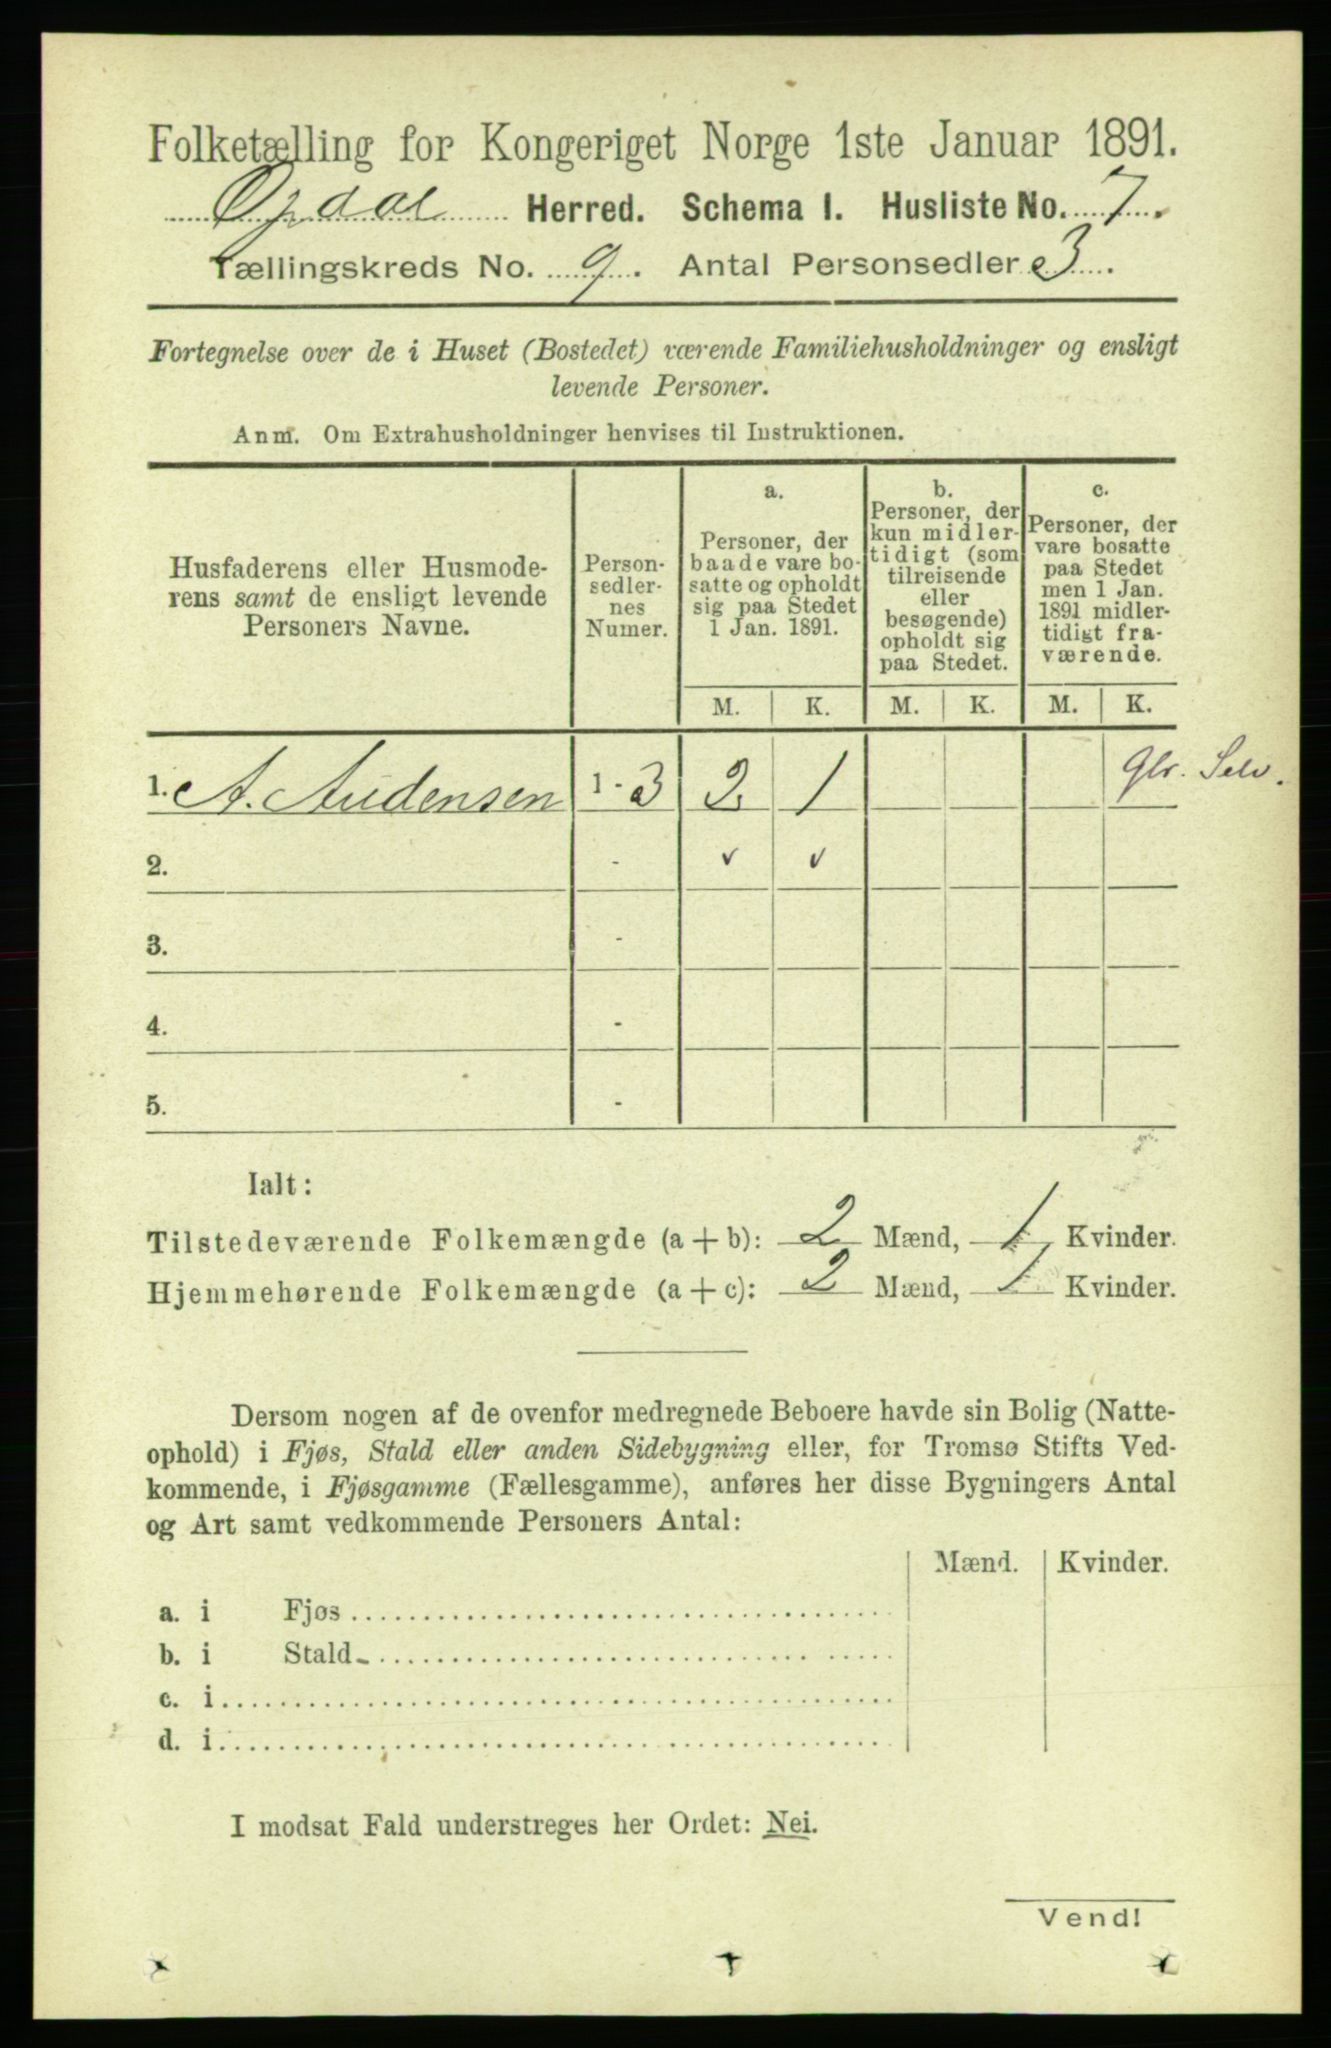 Folketælling for Kongeriget Norge 1ste Januar 1891.
Opdal Herred. Schema I. Husliste No. 7.
Tællingskreds No. 9. Antal Personsedler 3.
Fortegnelse over de i Huset (Bostedet) værende Familiehusholdninger og ensligt
levende Personer.
Anm. Om Extrahusholdninger henvises til Instruktionen.
Husfaderens eller Husmode-
rens samt de ensligt levende
Personers Navne.
Person-
sedler-
nes
Numer.
a.
Personer, der
baade vare bo-
satte og opholdt
sig paa Stedet
1 Jan. 1891.
b.
Personer, der
kun midler-
tidigt (som
tilreisende
eller
besøgende)
opholdt sig
paa Stedet.
c.
Personer, der
vare bosatte
paa Stedet
men 1 Jan.
1891 midler-
tidigt fra-
værende.
M. K. M. K. M. K.
1. A. Audensen 1 - 3 2 1 Glr. Selv.
2. - v v
3. -
4. -
5. -
Ialt:
Tilstedeværende Folkemængde (a + b): 2 Mænd, 1 Kvinder.
Hjemmehørende Folkemængde (a + c): 2 Mænd, 1 Kvinder.
Dersom nogen af de ovenfor medregnede Beboere havde sin Bolig (Natte-
ophold) i Fjøs, Stald eller anden Sidebygning eller, for Tromsø Stifts Ved-
kommende, i Fjøsgamme (Fællesgamme), anføres her disse Bygningers Antal
og Art samt vedkommende Personers Antal:
Mænd. Kvinder.
a. i Fjøs
b. i Stald
c. i
d. i
I modsat Fald understreges her Ordet: Nei.
Vend!